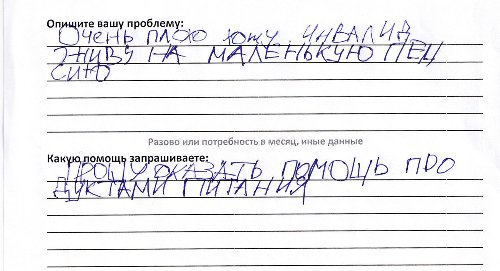 Опишите вашу проблему:
Очень плохо хожу инвалид
живу на маленькую пен
сию
Разово или потребность в месяц, иные данные
Какую помощь запрашиваете:
Прошу оказать помощь про
дуктами питания